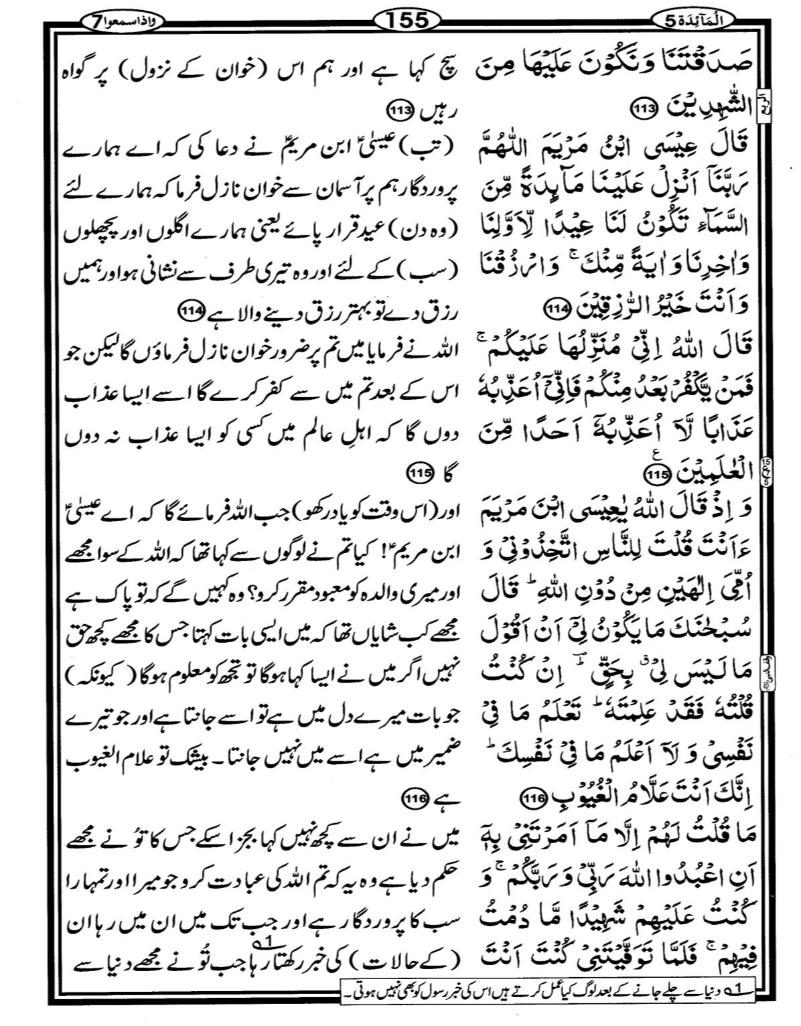 اَلْمَآئِدَة 5
155
واذاسمعوا 7
صَدَقْتَنَا وَنَكُوْنَ عَلَيْهَا مِنَ
الشّٰهِدِيْنَ 113
قَالَ عِيْسَى ابْنُ مَرْيَمَ اللّٰهُمَّ
رَبَّنَآ اَنْزِلْ عَلَيْنَا مَآئِدَةً مِّنَ
السَّمَآءِ تَكُوْنُ لَنَا عِيْدًا لِّاَوَّلِنَا
وَاٰخِرِنَا وَاٰيَةً مِّنْكَ ۚ وَارْزُقْنَا
وَاَنْتَ خَيْرُ الرّٰزِقِيْنَ 114
قَالَ اللّٰهُ اِنِّيْ مُنَزِّلُهَا عَلَيْكُمْ ۚ
فَمَنْ يَّكْفُرْ بَعْدُ مِنْكُمْ فَاِنِّيْٓ اُعَذِّبُهٗ
عَذَابًا لَّآ اُعَذِّبُهٗٓ اَحَدًا مِّنَ
الْعٰلَمِيْنَ 115 ع
وَ اِذْ قَالَ اللّٰهُ يٰعِيْسَى ابْنَ مَرْيَمَ
ءَاَنْتَ قُلْتَ لِلنَّاسِ اتَّخِذُوْنِيْ وَ
اُمِّيَ اِلٰهَيْنِ مِنْ دُوْنِ اللّٰهِ ؕ قَالَ
سُبْحٰنَكَ مَا يَكُوْنُ لِيْٓ اَنْ اَقُوْلَ
مَا لَيْسَ لِيْ ۗ بِحَقٍّ ؕ اِنْ كُنْتُ
قُلْتُهٗ فَقَدْ عَلِمْتَهٗ ؕ تَعْلَمُ مَا فِيْ
نَفْسِيْ وَ لَآ اَعْلَمُ مَا فِيْ نَفْسِكَ ؕ
اِنَّكَ اَنْتَ عَلَّامُ الْغُيُوْبِ 116
مَا قُلْتُ لَهُمْ اِلَّا مَآ اَمَرْتَنِيْ بِهٖٓ
اَنِ اعْبُدُوا اللّٰهَ رَبِّيْ وَ رَبَّكُمْ ۚ وَ
كُنْتُ عَلَيْهِمْ شَهِيْدًا مَّا دُمْتُ
فِيْهِمْ ۚ فَلَمَّا تَوَفَّيْتَنِيْ كُنْتَ اَنْتَ
سچ کہا ہے اور ہم اس (خوان کے نزول) پر گواہ
رہیں 113
(تب) عیسیٰؑ ابن مریمؑ نے دعا کی کہ اے ہمارے
پروردگار ہم پر آسمان سے خوان نازل فرما کہ ہمارے لئے
(وہ دن) عید قرار پائے یعنی ہمارے اگلوں اور پچھلوں
(سب) کے لئے اور وہ تیری طرف سے نشانی ہو اور ہمیں
رزق دے تو بہتر رزق دینے والا ہے 114
اللہ نے فرمایا میں تم پر ضرور خوان نازل فرماؤں گا لیکن جو
اس کے بعد تم میں سے کفر کرے گا اسے ایسا عذاب
دوں گا کہ اہلِ عالم میں کسی کو ایسا عذاب نہ دوں
گا 115
اور (اس وقت کو یاد رکھو) جب اللہ فرمائے گا کہ اے عیسیٰؑ
ابن مریمؑ! کیا تم نے لوگوں سے کہا تھا کہ اللہ کے سوا مجھے
اور میری والدہ کو معبود مقرر کرو؟ وہ کہیں گے کہ تو پاک ہے
مجھے کب شایاں تھا کہ میں ایسی بات کہتا جس کا مجھے کچھ حق
نہیں اگر میں نے ایسا کہا ہوگا تو تجھ کو معلوم ہوگا (کیونکہ)
جو بات میرے دل میں ہے تو اسے جانتا ہے اور جو تیرے
ضمیر میں ہے اسے میں نہیں جانتا۔ بیشک تو علام الغیوب
ہے 116
میں نے ان سے کچھ نہیں کہا بجز اسکے جس کا تُو نے مجھے
حکم دیا ہے وہ یہ کہ تم اللہ کی عبادت کرو جو میرا اور تمہارا
سب کا پروردگار ہے اور جب تک میں ان میں رہا ان
(کے حالات) کی خبر رکھتا رہا 1 جب تُو نے مجھے دنیا سے
1 دنیا سے چلے جانے کے بعد لوگ کیا عمل کرتے ہیں اس کی خبر رسول کو بھی نہیں ہوتی۔